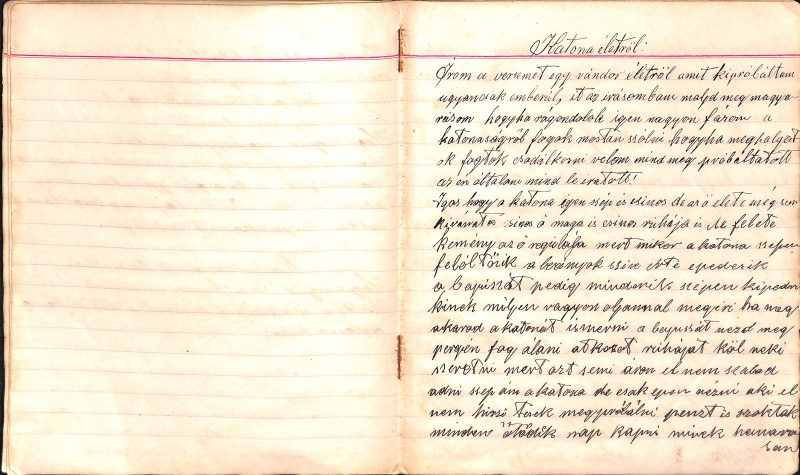 Katona életről:
Írom a versemet egy vándor életről amit kipróbáltam
ugyancsak emberül, it az irásomban majd meg magya
rázom hogyha rágondolok igen nagyon fázom a
katonaságról fogok mostan szólni hogyha meghalgat
ok fogtok csodálkozni velem mind meg próbáltatott
az én általam mind le iratott!
Igaz hogy a katona igen szép és csinos de az ő élete még sem
kivánatos csinos ő maga is csinos ruhája is de fekete
kemény az ő regulája mert mikor a katona szepen
felöltözik a leányok szive érte epederik
a bajuszát pedig mindenik szépen kipedri
kinek milyen vagyon olyannal megéri ha meg
akarod a katonát ismerni a bajuszát nézd meg
pergén fog álani átkozot ruháját köl neki
szeretni mert azt semi áron el nem szabad
adni szep ám a katona de csak epen nézni aki el
nem hiszi tesék megpróbálni penzt is szoktak
minden ötödik nap kapni minek hamaro
san